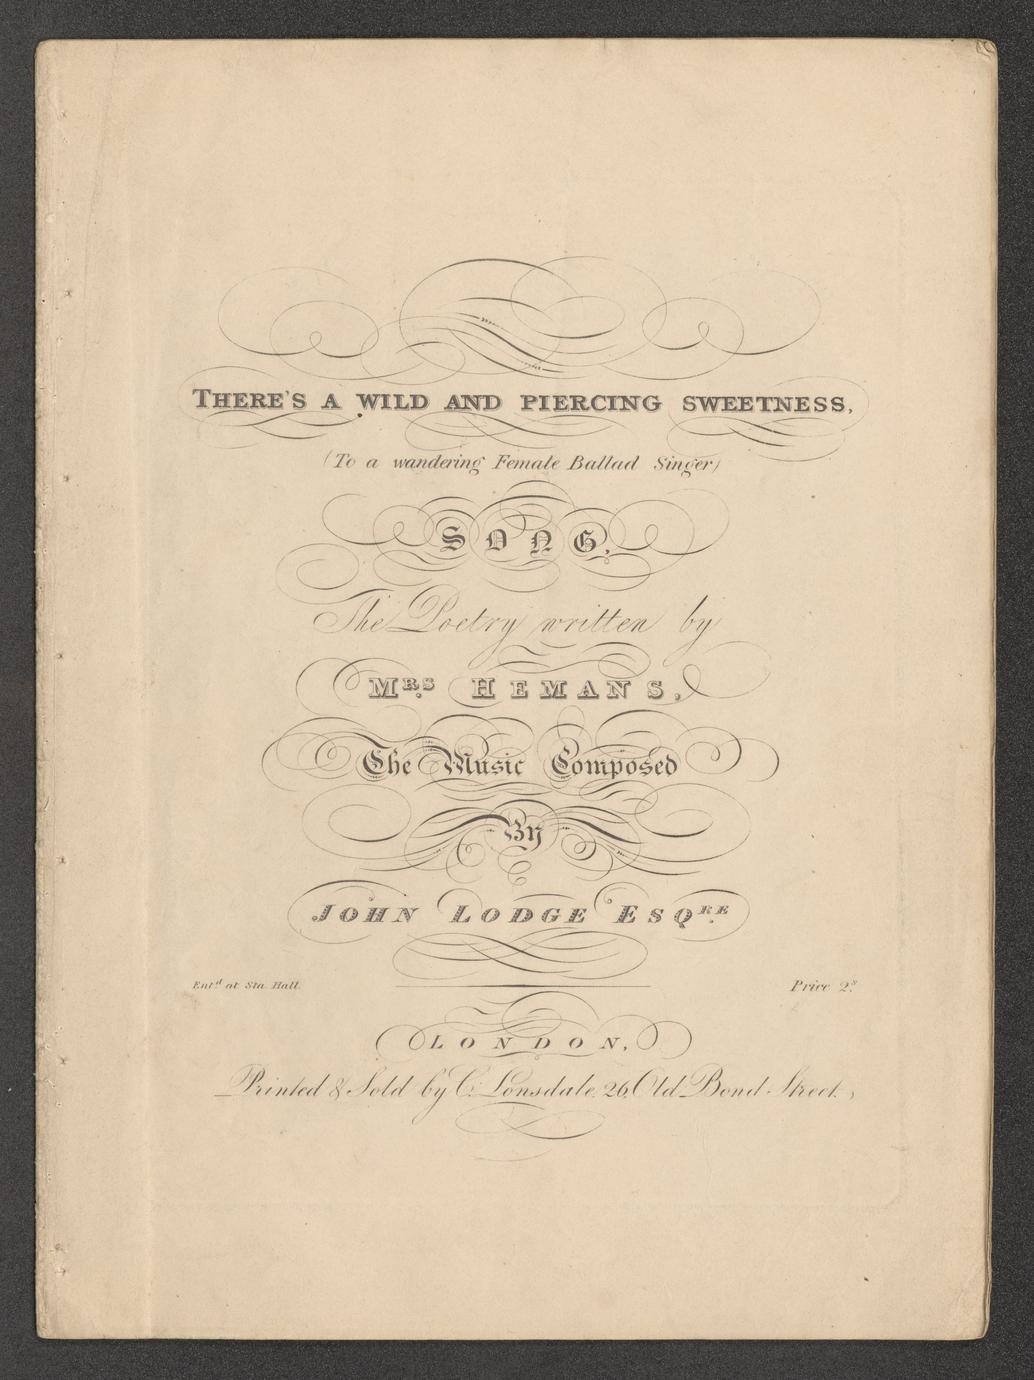 THERE'S A WILD AND PIERCING SWEETNESS,
(To a wandering Female Ballad Singer)
SONG,
The Poetry written by
MRS. HEMANS,
The Music Composed
By
JOHN LODGE ESQRE.
Entd. at Sta. Hall.
Price 2s.
LONDON,
Printed & Sold by C. Lonsdale, 26, Old Bond Street,